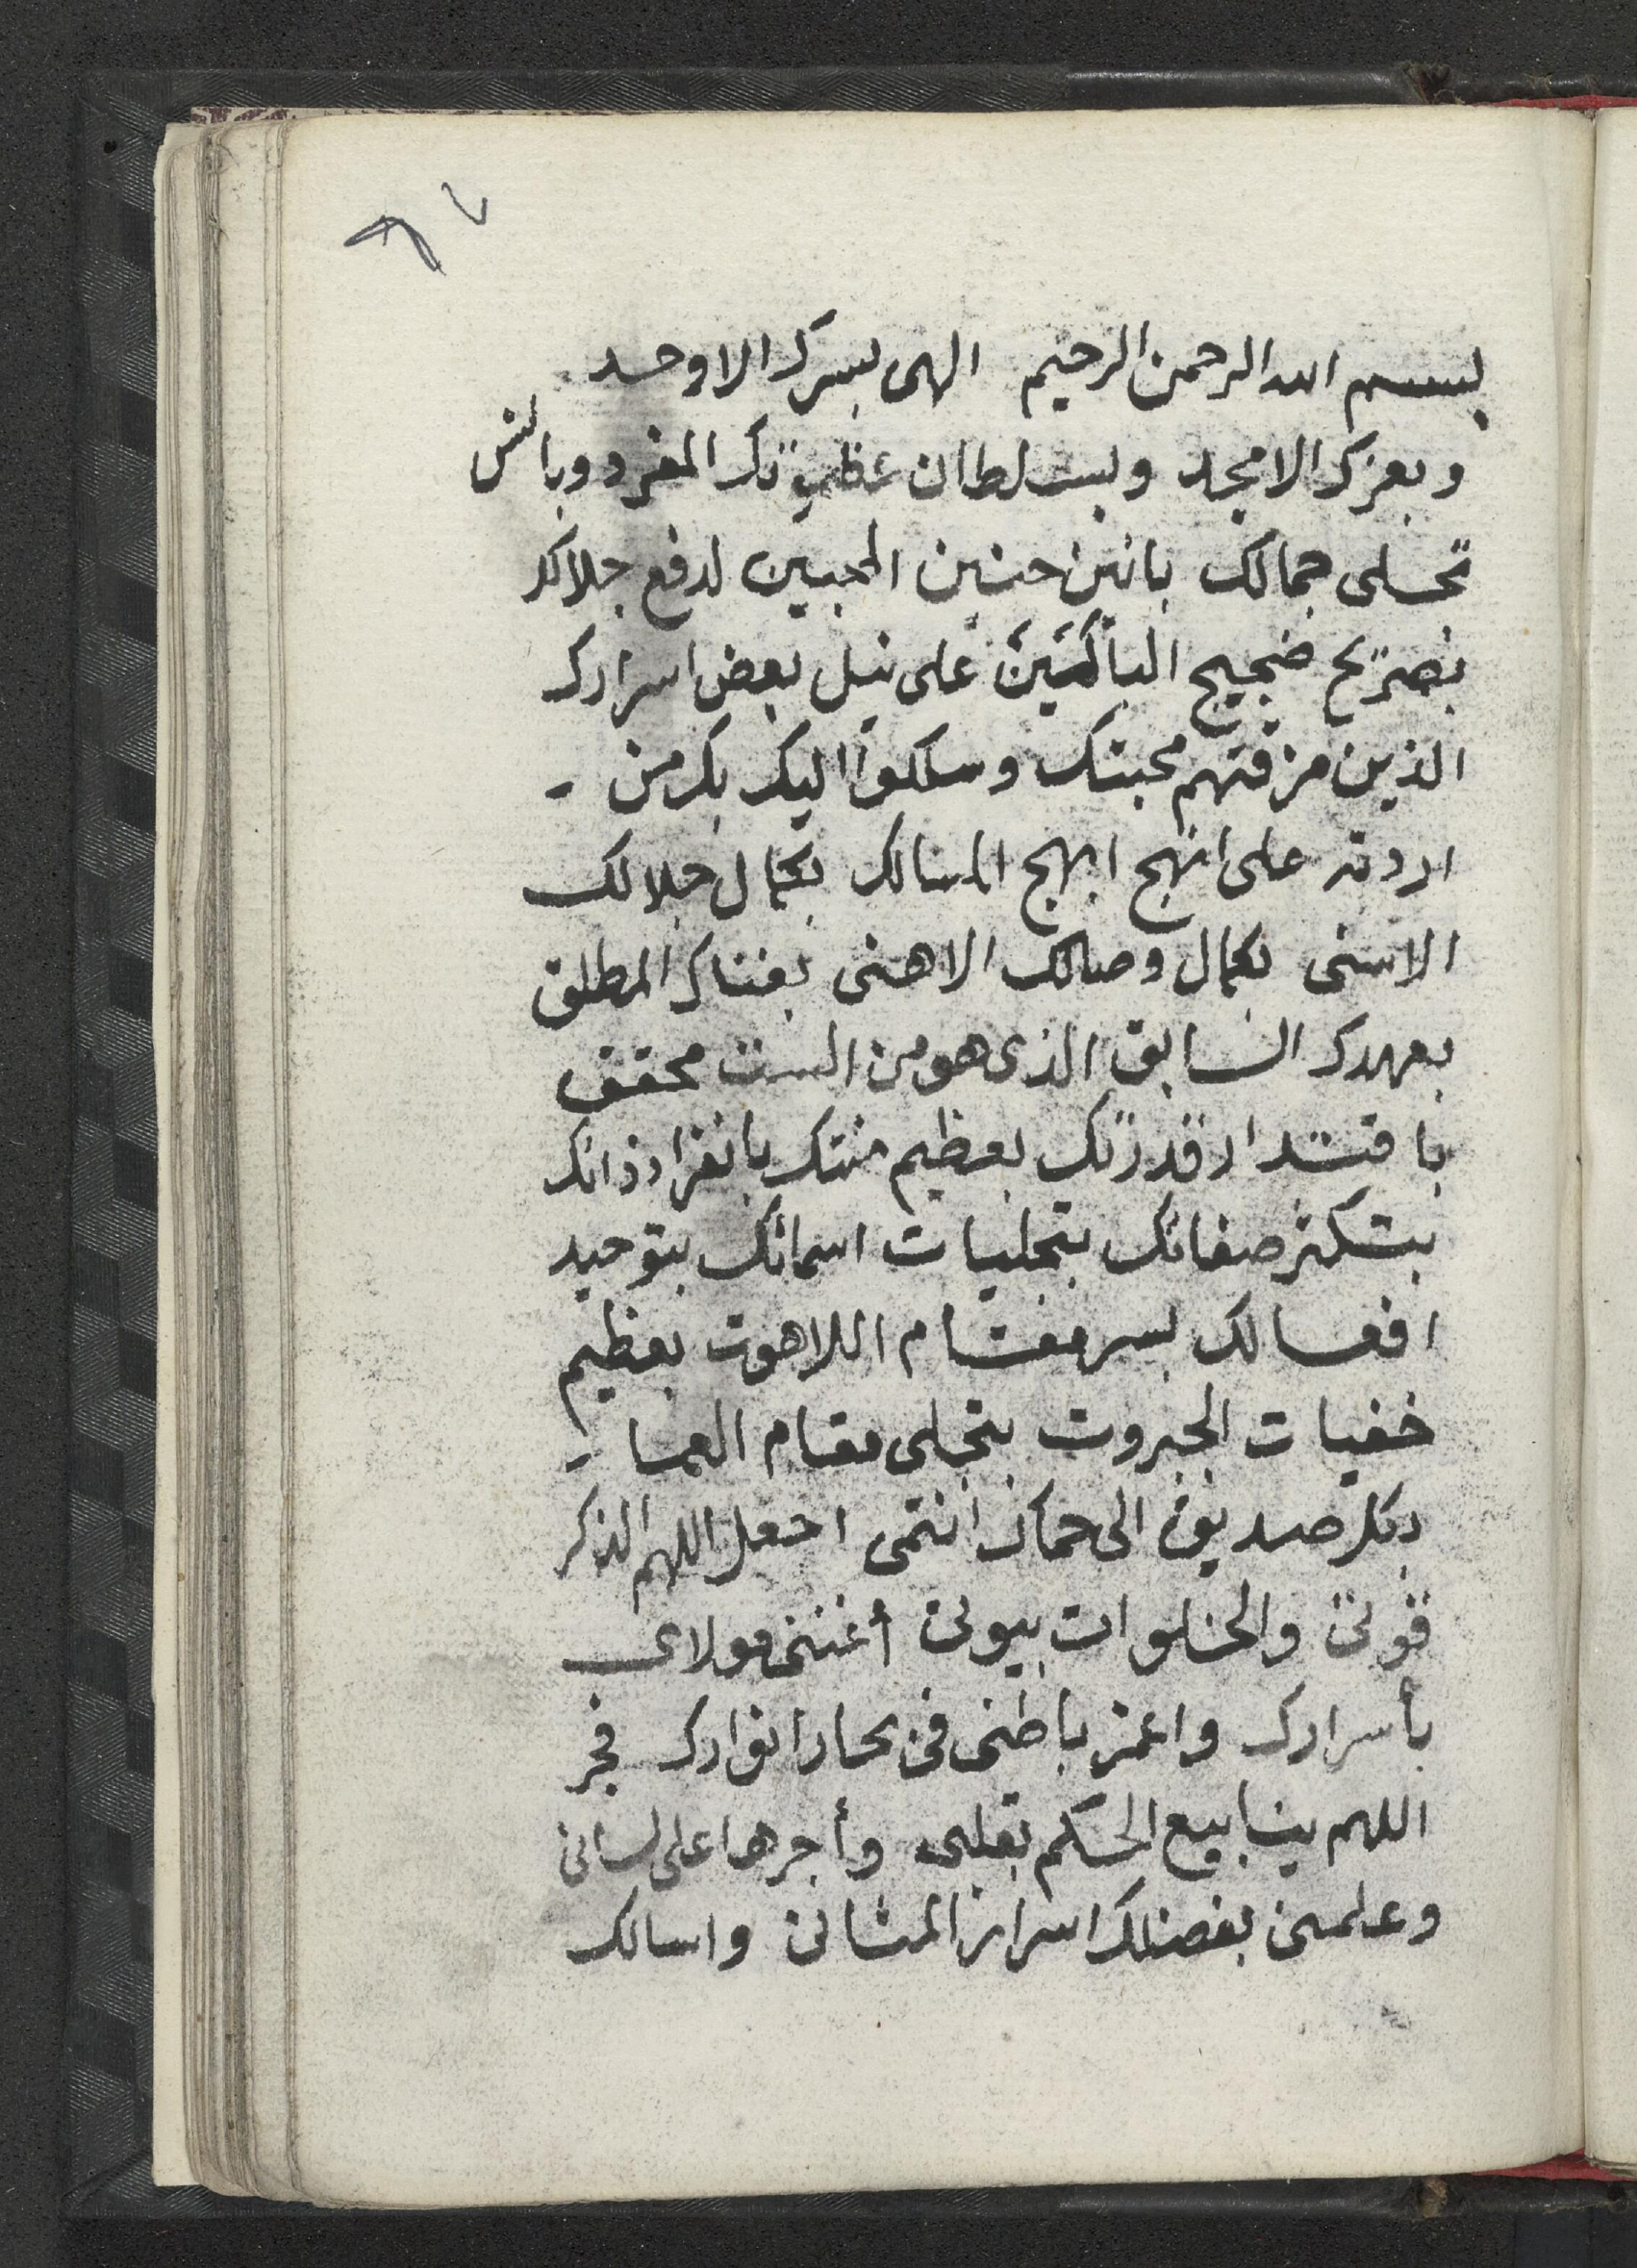 بسم الله الرحمن الرحيم الهى بسرك الاوحد
وبعزك الامجد وبسلطان عظمتك المفرد وبالس
تجلى جمالك بانين حنين المحبين لدفع جلالك
بتصريح ضجيج الباكين على نيل بعض اسرارك
الذين مزقتهم محبتك وسلكوا اليك بك من
اردته على انهج ابهج المسالك بكمال جلالك
الاسنى بكمال وصالك الاهنى بغناك المطلق
بعهدك السابق الذى هو من الست محقق
باقتدار قدرتك بعظيم منتك بانفراد ذاتك
بتكثر صفاتك بتجليات اسمائك بتوحيد
افعالك بسر مقام اللاهوت بعظيم
خفيات الجبروت بتجلى مقام العما
بكل صديق الى حماك انتمى اجعل اللهم الذكر
قوتى والخلوات بيوتى أغننى مولاى
بأسرارك واغمز باطنى فى بحار انوارك فجر
اللهم ينابيع الحكم بقلبى وأجرها على لسانى
وعلمنى بفضلك اسرار المثانى واسالك